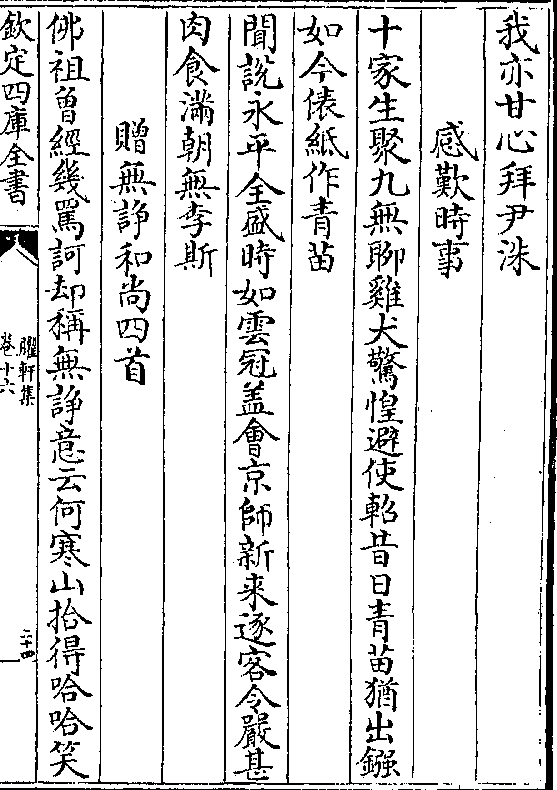 我亦甘心拜尹洙
感歎時事
十家生聚九無聊雞犬驚惶避使軺昔日青苗猶出鏹
如今俵紙作青苗
聞説永平全盛時如雲冠盖會京師新来逐客令嚴甚
肉食滿朝無李斯
贈無諍和尚四首
佛祖曾經幾罵訶却稱無諍意云何寒山拾得哈哈笑
欽定四庫全書
臞軒集
卷十六
二十四